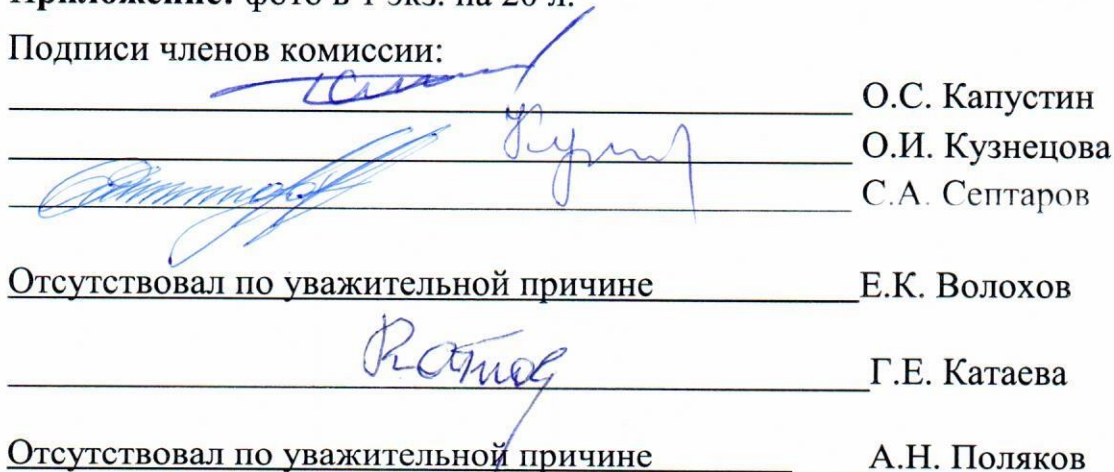 Приложение: фото в 1 экз. на 20 л.
Подписи членов комиссии:
О.С. Капустин
О.И. Кузнецова
С.А. Септаров
Отсутствовал по уважительной причине Е.К. Волохов
Г.Е. Катаева
Отсутствовал по уважительной причине А.Н. Поляков